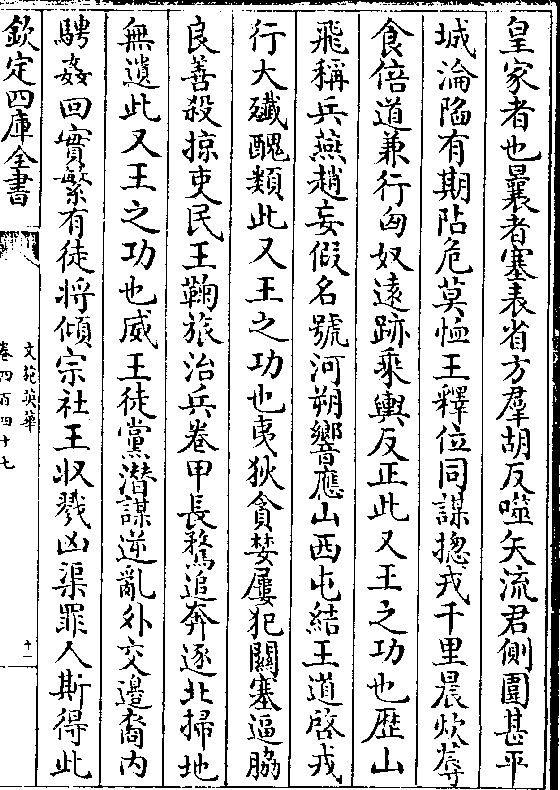 皇家者也曩者塞表省方羣胡反噬矢流君側圍甚平
城淪陷有期阽危莫恤王釋位同謀揔戎千里晨炊蓐
食倍道兼行匈奴遠跡乘輿反正此又王之功也歷山
飛稱兵燕趙妄假名號河朔響應山西屯結王道啓戎
行大殲醜類此又王之功也夷狄貪婪屢犯關塞逼脇
良善殺掠吏民王鞠旅治兵卷甲長騖追奔逐北掃地
無遺此又王之功也威王徒黨潛謀逆亂外交邊裔内
騁姦回實繁有徒將傾宗社王收戮凶渠罪人斯得此
欽定四庫全書
文苑英華
卷四百四十七
十一